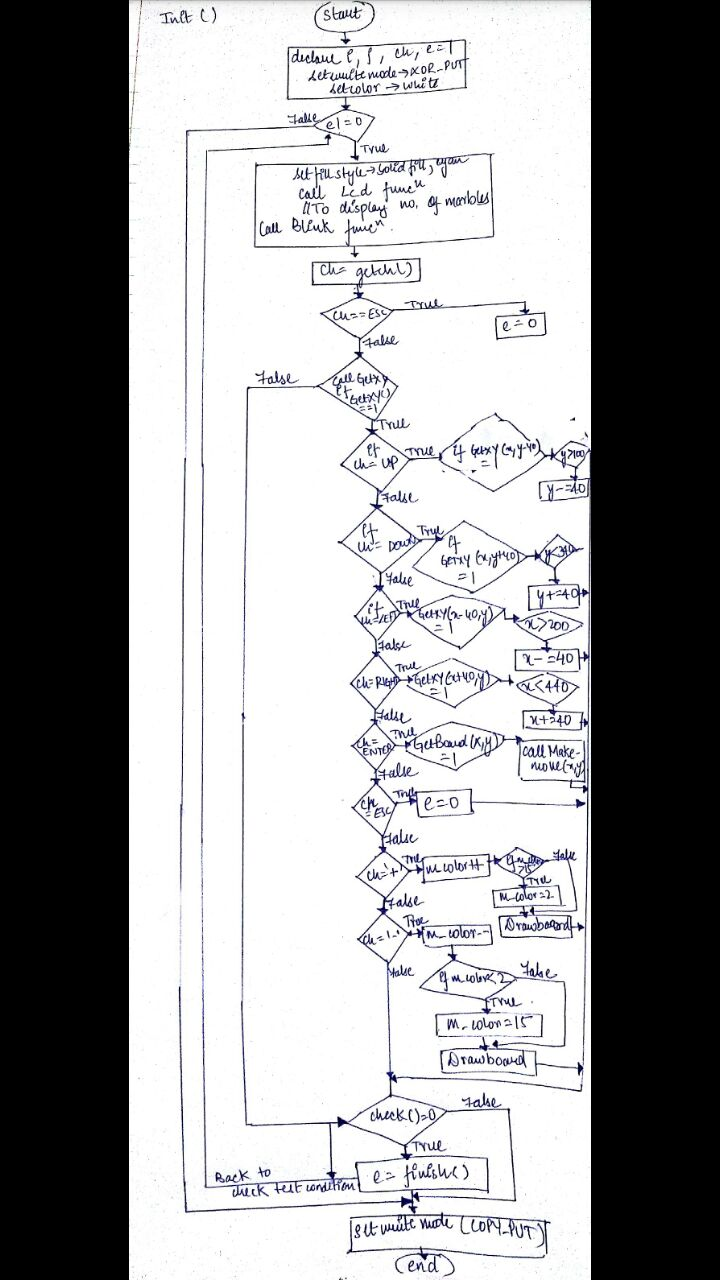 Init ()
Start
declare i, j, ch, e=1
setwritemode→XOR_PUT
setcolor → white
False
e!=0
True
set fill style→solid fill, cyan
call Lcd funcⁿ
//To display no. of marbles
Call Blink funcⁿ.
Ch= getch()
ch==ESC
True
e=0
False
False
Call Getxy
if
GetXY()
==1
True
if
ch= UP
True
if GetXY(x,y-40)
=1
y>100
y-=40
False
if
ch= Down
True
if
GetXY(x,y+40)
=1
y<340
y+=40
False
if
ch=LEFT
True
GetXY(x-40,y)
=1
x>200
x-=40
False
ch=RIGHT
True
GetXY(x+40,y)
=1
x<440
x+=40
False
ch=
ENTER
True
GetBoard(x,y)
=1
call Make-
move(x,y)
False
ch
=ESC
True
e=0
False
ch='+'
True
m color++
if m color
>15
False
True
m-color=2
Drawboard
False
ch='-'
True
m_color--
False
if m color<2
False
True
m-color=15
Drawboard
check()=0
False
True
e= finish()
Back to
check test condition
Set write mode (COPY_PUT)
end